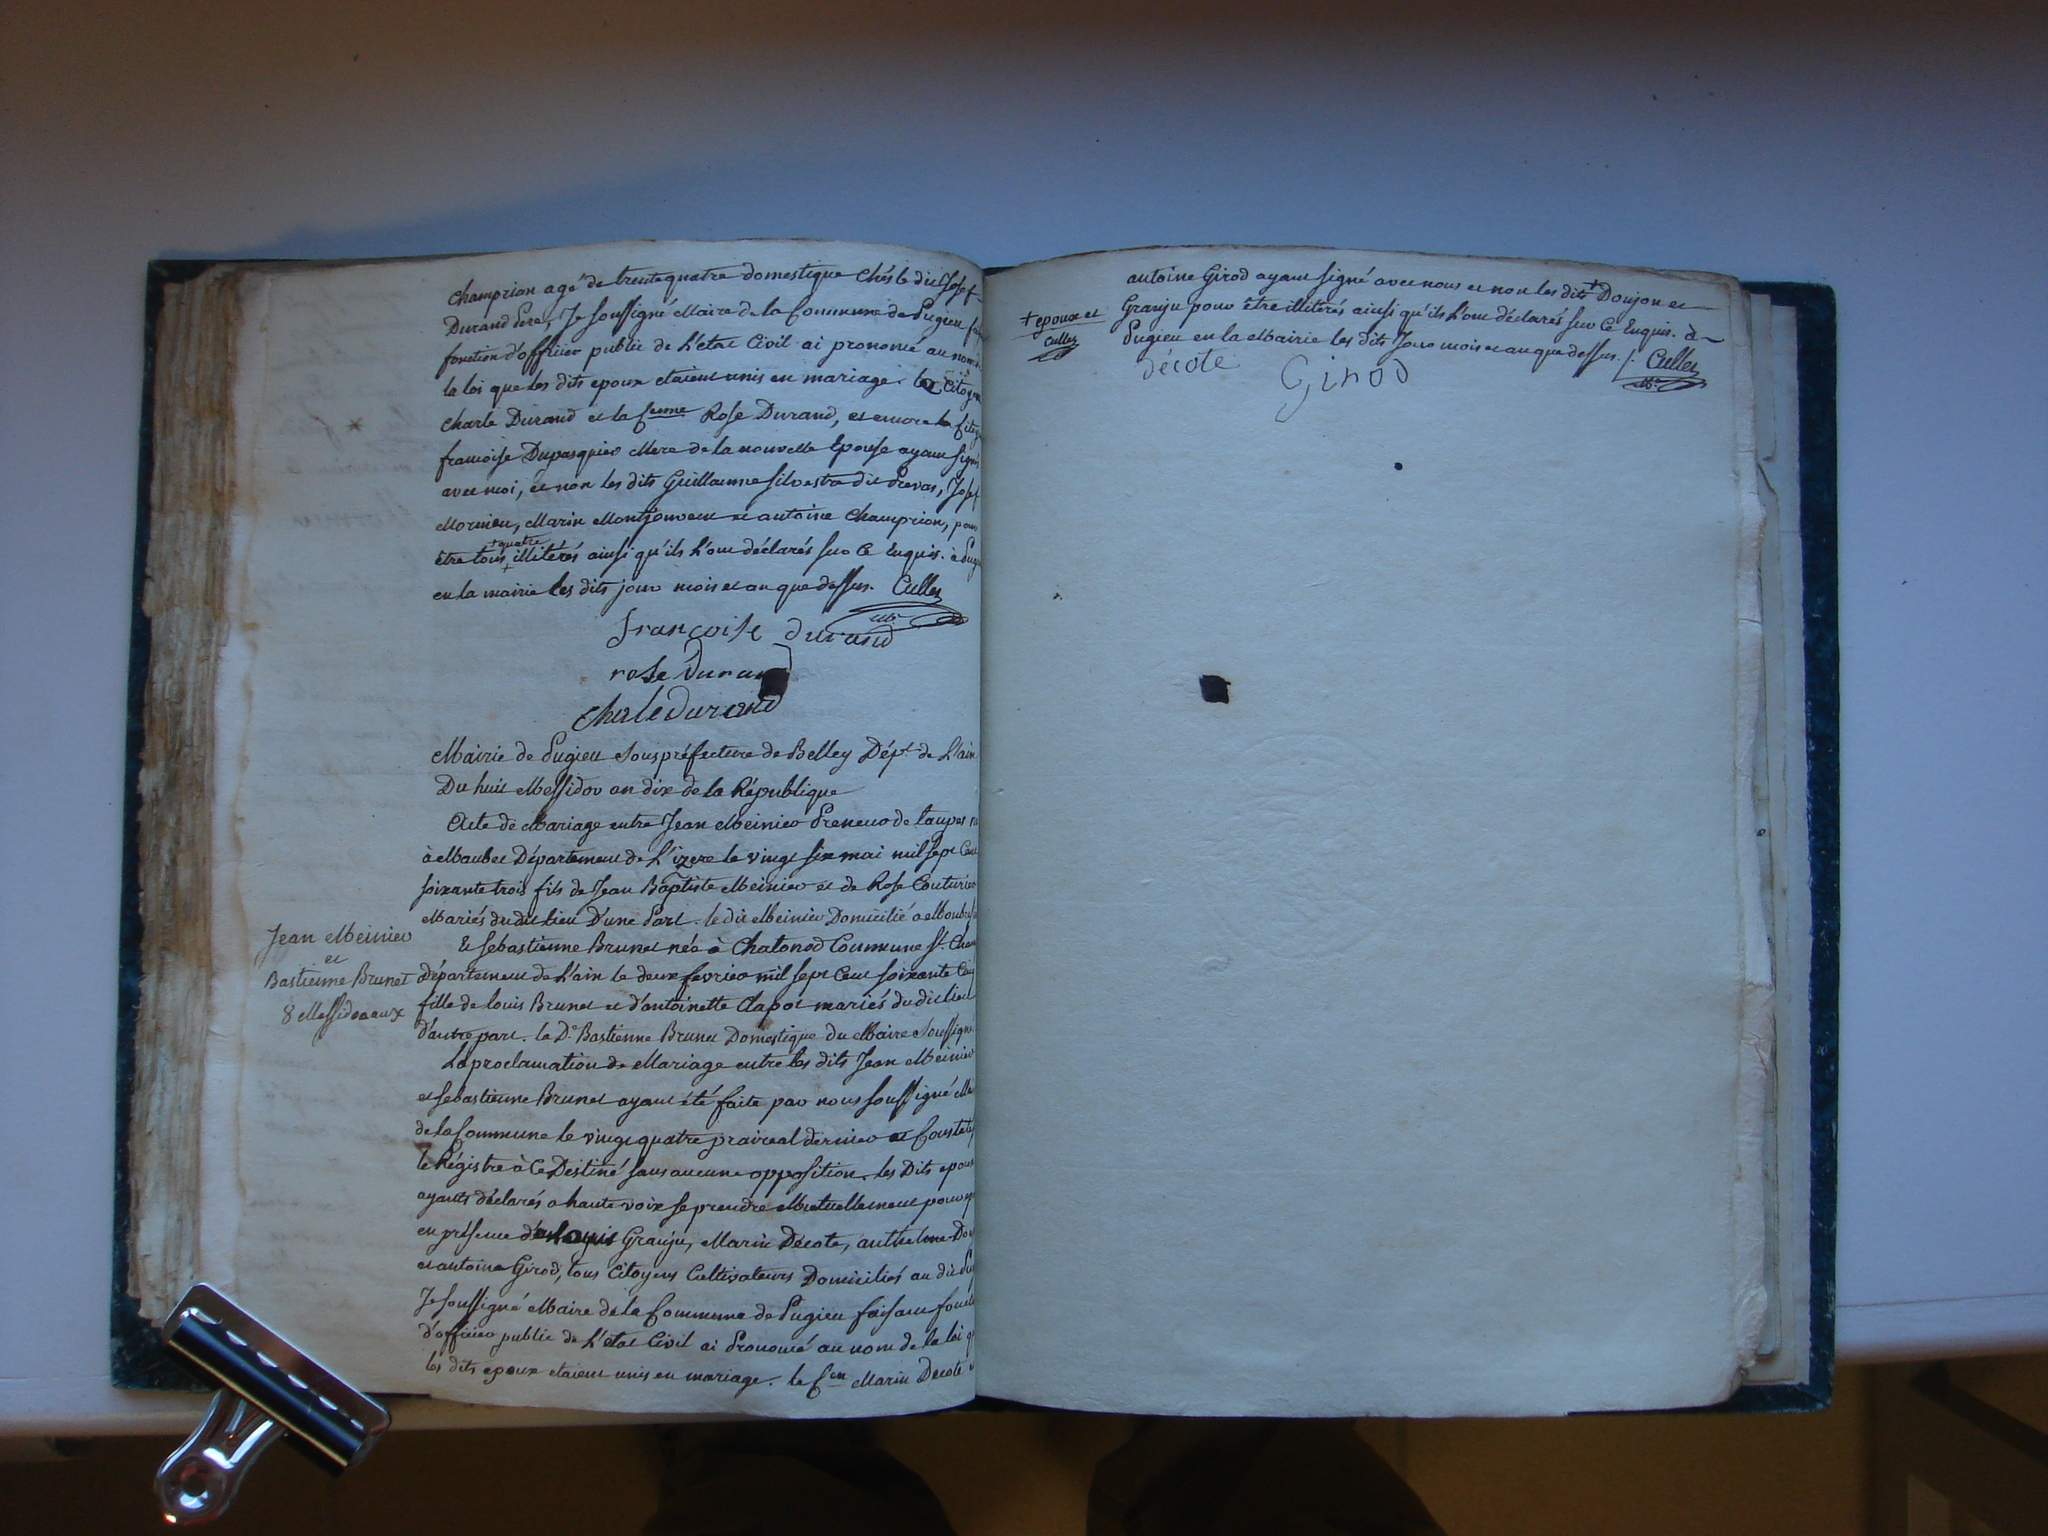 Champrion agé de trente quatre domestique Chés le dit Josef
Durand Pere, Je soussigné Maire de la Commune de Pugieu
fonction d'officier public de L'etat Civil ai prononcé au nom
la loi que les dits epoux etaient unis en mariage. le Citoyen
Charle Durand et la femme Rose Durand, et encore la
francoise Dupasquier Mere de la nouvelle Epouse ayant signé
avec moi, et non les dits Guillaume Silvestre dit Prevas, Josef
Mornieu, Marin Montjouvent et antoine Champrion, pour
+ quatre
être tous + illitérés ainsi qu'ils L'ont déclarés sur Ce Enquis. à
en la mairie les dits jour mois et an que dessus. Cullez
francoise durand
rose durand
Charle durand
Mairie de Pugieu Souspréfecture de Belley Dépt. de L'ain
Du huit Messidor an dix de la République
Jean Meinier
et
Bastienne Brunet
8 Messidor anx
Acte de Mariage entre Jean Meinier Preneur de taupes
à Maubec Département de L'izere le vingt six mai mil sept Cent
soixante trois fils de Jean Baptiste Meinier et de Rose Couturier
Mariés du dit lieu D'une Part. le dit Meinier Domicilié a
Et Sebastienne Brunet née à Chatonod Commune St.
département de L'ain le deux fevrier mil sept Cent soixante
fille de louis Brunet et d'antoinette Clapot mariés du dit lieu
d'autre part. la De. Bastienne Brunet Domestique du Maire Soussigné
La proclamation de Mariage entre les dits Jean Meinier
et Sebastienne Brunet ayant été faite par nous soussigné
de la Commune le vingt quatre praireal dernier et
le Régistre à Ce Destiné sans aucune opposition. les Dits epoux
ayants déclarés a haute voix se prendre Mutuellement pour
en présence de louis Granju, Marin Decote, anthelme
et antoine Girod, tous Citoyens Cultivateurs Domiciliés au dit
Je soussigné Maire de la Commune de Pugieu faisant
d'officier public de L'etat Civil ai Prononcé au nom de la loi
les dits epoux etaient unis en mariage. le Cen Marin Decote
antoine Girod ayant signé avec nous et non les dits + Doujon et
+ epoux et
Cullez
Granju pour être illitérés ainsi qu'ils L'ont déclarés sur Ce Enquis. à
Pugieu en la Mairie les dits Jour mois et an que dessus. Cullez
décote Girod